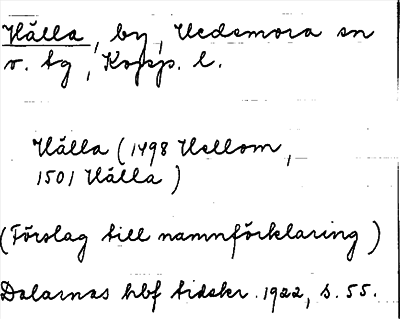 Hälla, by, Hedemora sn
v. tg, Kopp. l.
Hälla (1498 Hellom,
1501 Hälla)
(Förslag till namnförklaring)
Dalarnas hbf tidskr. 1922, s. 55.